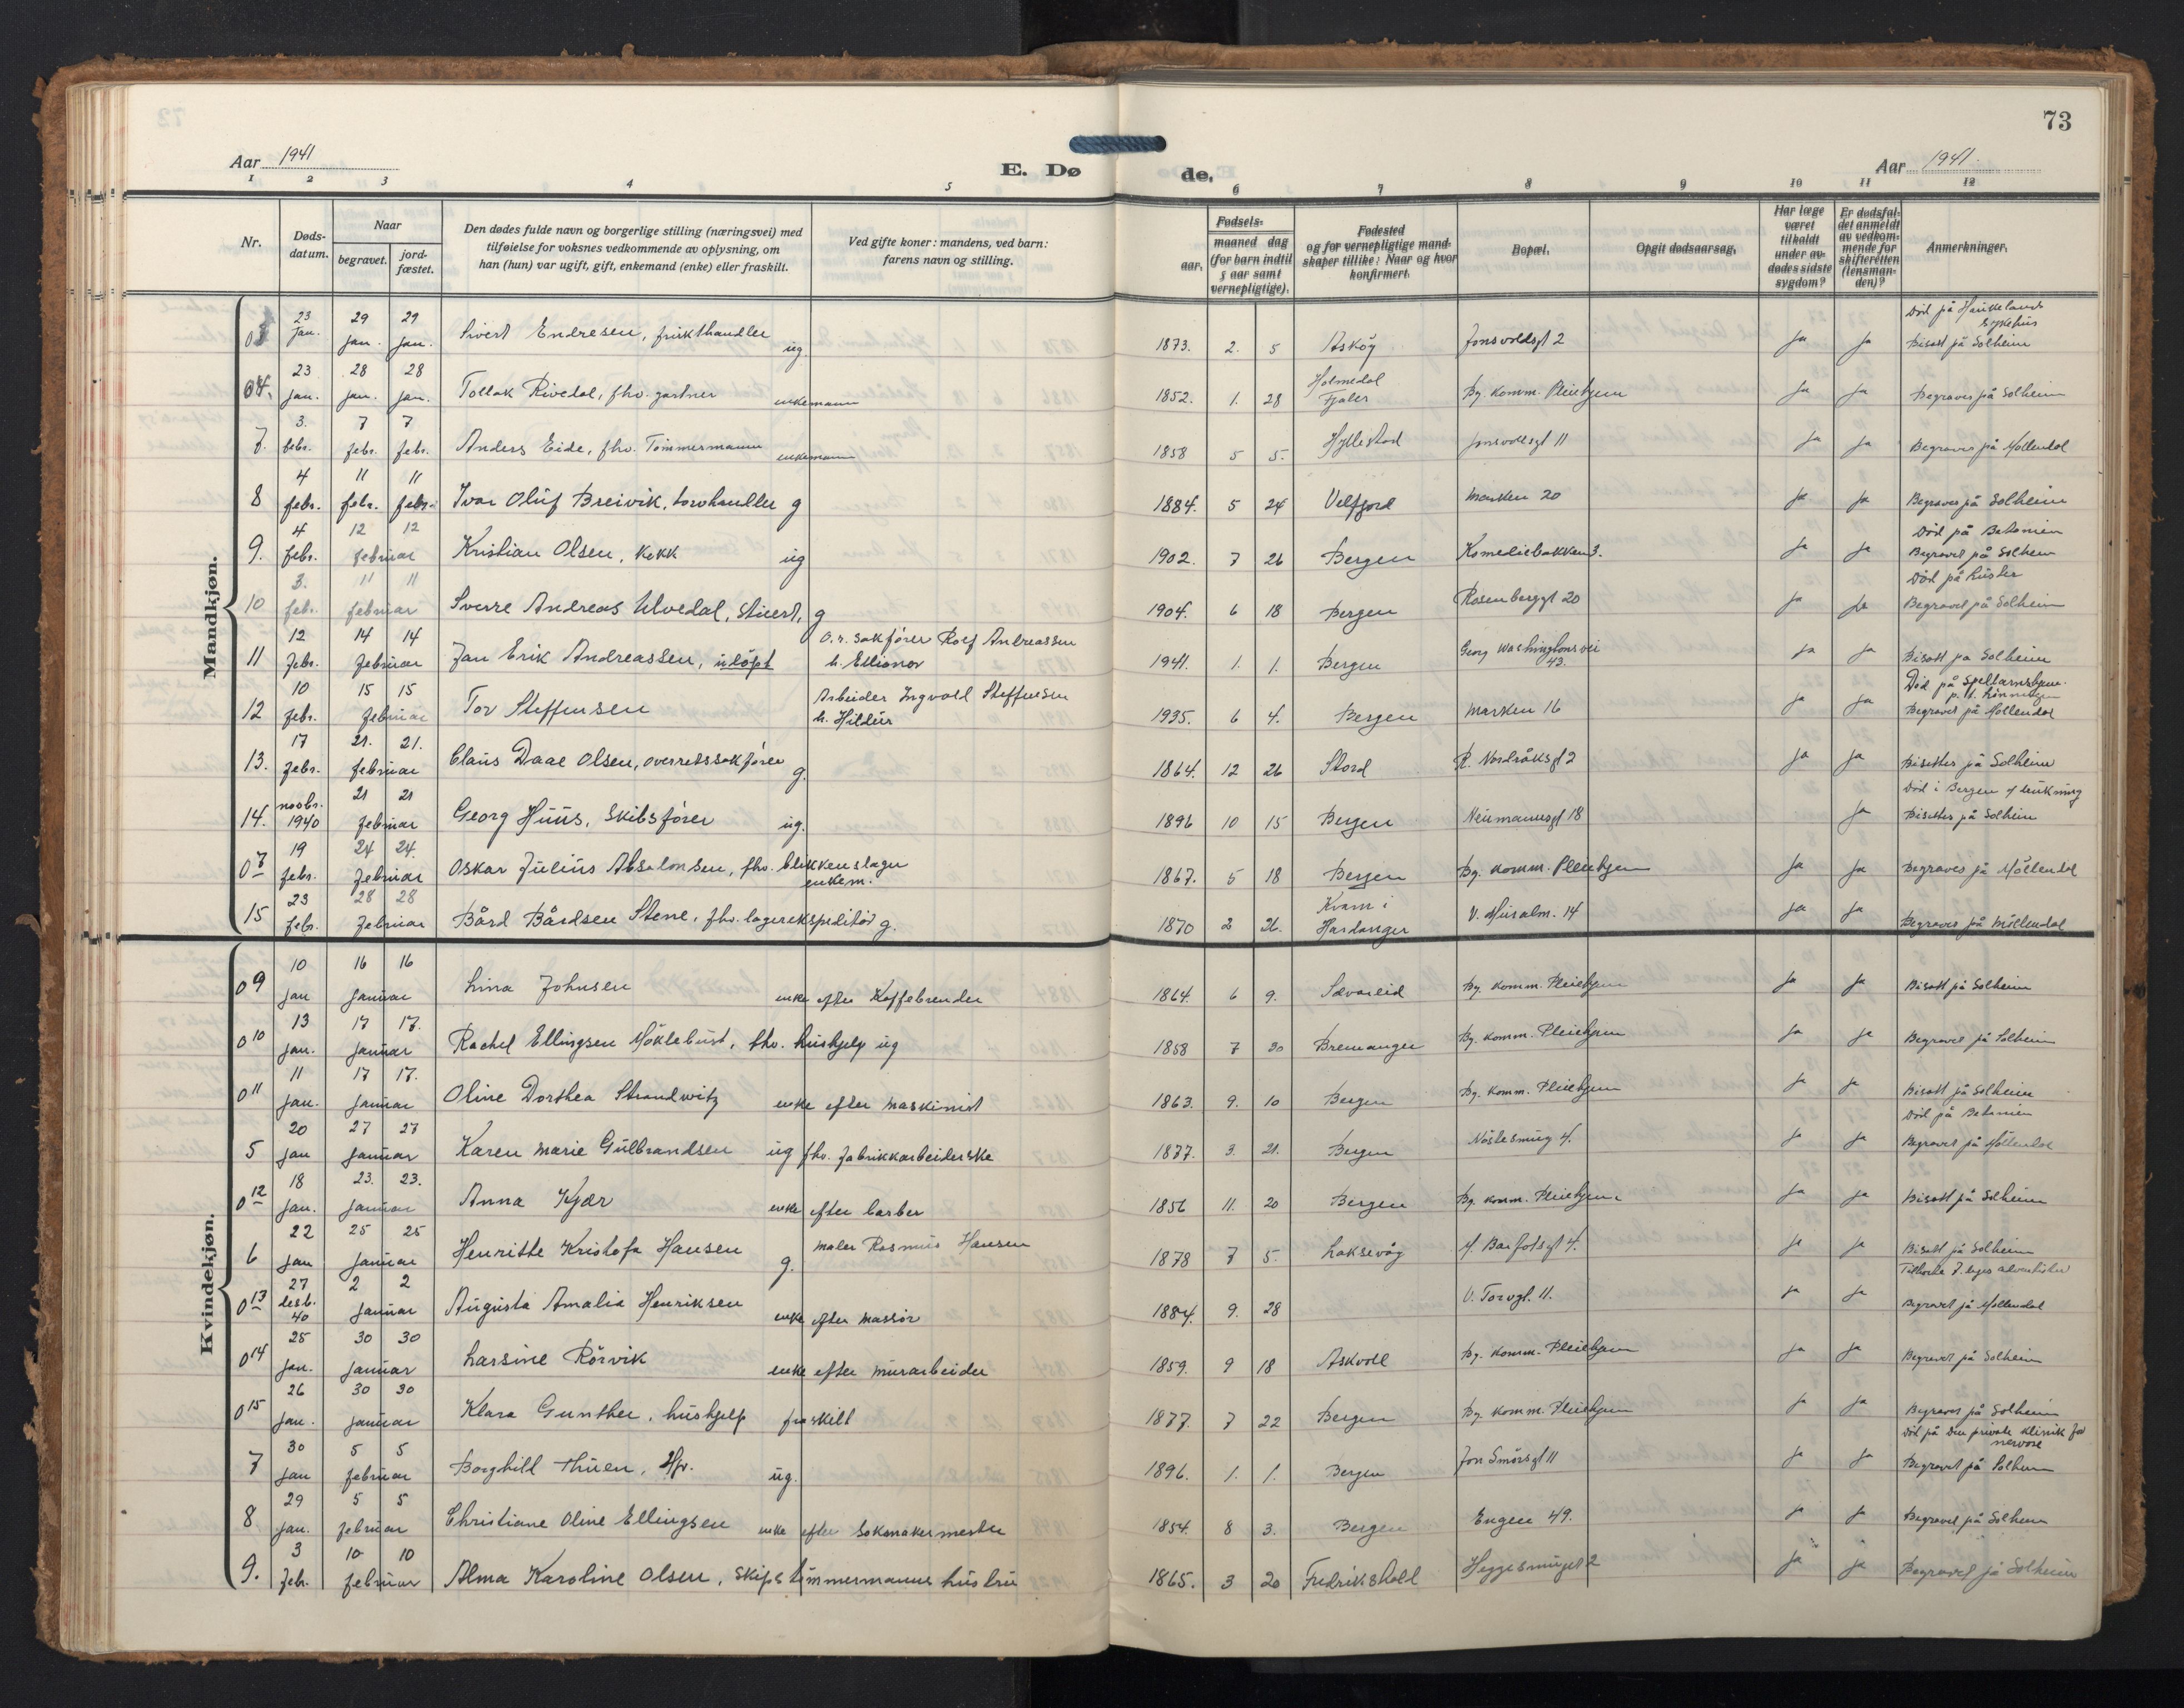 73
Aar 1941
E. Dø
de.
Aar 1941.
1 2 3 4 5 6 7 8 9 10 11 12
Nr.
Døds-
datum.
Naar
begravet.
jord-
fæstet.
Den dødes fulde navn og borgerlige stilling (næringsvei) med
tilføielse for voksnes vedkommende av oplysning, om
han (hun) var ugift, gift, enkemand (enke) eller fraskilt.
Ved gifte koner: mandens, ved barn:
farens navn og stilling.
Fødsels-
aar.
maaned dag
(for barn indtil
5 aar samt
vernepligtige).
Fødested
og for vernepligtige mand-
skaper tillike: Naar og hvor
konfirmert.
Bopæl.
Opgit dødsaarsag.
Har læge
været
tilkaldt
under av-
dødes sidste
sygdom?
Er dødsfal-
det anmeldt
av vedkom-
mende for
skifteretten
(lensman-
den)?
Anmerkninger.
Mandkjøn.
23 Jan. 29 jan. 29 jan. Sivert Endresen, frukthandler ug 1873. 2. 5 Askøy Jonsvoldsgt 2 Ja Ja Död på Haukelands Sykehus Bisatt på Solheim
04. 23 jan. 28 jan. 28 jan. Tollak Rivedal, fhv. gartner enkemann 1852. 1. 28 Holmedal Fjaler Bg. komm. Pleiehjem Ja Ja Begraves på Solheim
7. 3. febr. 7 febr. 7 febr. Anders Eide, fhv. Tömmermann enkemann 1858 5 5. Hyllestad Jonsvollsgt 11 Ja Ja Begraves på Möllendal
8 4 febr. 11 febr. 11 febr. Ivar Oluf Breivik, torvhandler g 1884. 5 24 Velfjord Marken 20 Ja Ja Begraves på Solheim
9. 4 febr. 12 12 februar Kristian Olsen, kokk ug 1902. 7 26 Bergen Komediebakken 3. Ja Ja Död på Betanien Begravet på Solheim
10 3. feb. 11 11 februar Sverre Andreas Ulvedal, stuert, g 1904. 6 18 Bergen Rosenberggt 20 Ja Ja Död på Luster Begravet på Solheim
11 12 febr. 14 14 februar Jan Erik Andreassen, udöpt O.r. sakförer Rolf Andreassen h. Ellionor 1941. 1. 1. Bergen Georg Washingtons vei 43. Ja Ja Bisatt på Solheim
12 10 febr. 15 15 februar Tor Steffensen Arbeider Ingvald Steffensen h. Hildur 1935. 6 4. Bergen Marken 16 Ja Ja Död på Begravet på Möllendal
13. 17 febr. 21. 21. februar Claus Daae Olsen, overretssakförer g. 1864. 12 26 Stord R. Nordråksgt 2 Ja Ja Bisettes på Solheim
14. novbr. 1940 21 21 februar Georg Huus, Skibsförer ug. 1896 10 15 Bergen Neumannsgt 18 Ja Död i Bergen Bisettes på Solheim
07 19 febr. 24 24. februar Oskar Julius Absalonsen, fhv. blikkenslager enkem. 1867. 5 18 Bergen Bg. komm. Pleiehjem Ja Ja Begraves på Möllendal
15 23 febr. 28 28 februar Bård Bårdsen Stene, fhv. lagerekspeditör g. 1870 2 26. Kvam i Hardanger V. Muralm. 14 Ja Ja Begraves på Möllendal
Kvindekjøn.
09 10 jan 16 16 januar Lina Johnsen enke efter Kaffebrender 1864. 6 9. Sævareid Bg. komm. Pleiehjem Ja Ja Bisatt på Solheim
010 13 jan. 17 17. januar Rachel Ellingsen Möklebust, fhv. hushjelp ug 1858 7 20 Bremanger Bg. komm. Pleiehjem Ja Ja Begravet på Solheim
011 11 jan. 17 17. januar Oline Dorthea Strandwitz enke efter maskinist 1863. 9. 10 Bergen Bg. komm. Pleiehjem Ja Ja Bisatt på Solheim
5 20 jan 27 27 januar Karen Marie Gulbrandsen ug fhv. fabrikkarbeiderske 1877. 3. 21. Bergen Nöstesmug 4. Ja Ja Död på Betanien Begravet på Möllendal
012 18 jan. 23. 23. januar Anna Kjær enke efter barber 1856 11. 20 Bergen Bg. komm. Pleiehjem. Ja Ja Bisatt på Solheim
6 22 jan 25 25 januar Henritte Kristofa Hansen g. Maler Rasmus Hansen 1878 7 5. Laksevåg M. Barfotsgt 4. Ja Ja Bisatt på Solheim
013 27 desb. 40 2 2 januar Augusta Amalia Henriksen enke efter massör 1884. 9. 28 V. Torvgt. 11. Ja Ja Tilhörte 7. dags adventister Begravet på Möllendal
014 25 jan. 30 30 januar Larsine Rörvik enke efter murarbeider 1859. 9 18 Askvoll Bg. komm. Pleiehjem Ja Ja Begravet på Solheim
015 26 jan. 30 30 januar Klara Gunther, hushjelp fraskilt 1877. 7 22 Bergen Bg. komm. Pleiehjem Ja Ja Begraves på Solheim
7 30 jan 5 5 februar Borghill Thuen, Hfr. ug. 1896. 1. 1. Bergen Jon Smörsgt 11 Ja Ja Död på Den private klinik for nervöse Begravet på Solheim
8 29 jan. 5 5 februar Christiane Oline Ellingsen enke efter Sokemakermester 1854. 8 3. Bergen Engen 49. Ja Ja Begravet på Solheim
9. 3 febr. 10 10 februar Alma Karoline Olsen, skipstömmermanns hustru 1865. 3 20 Fredrikshald Heggesmuget 2 Ja Ja Begravet på Solheim